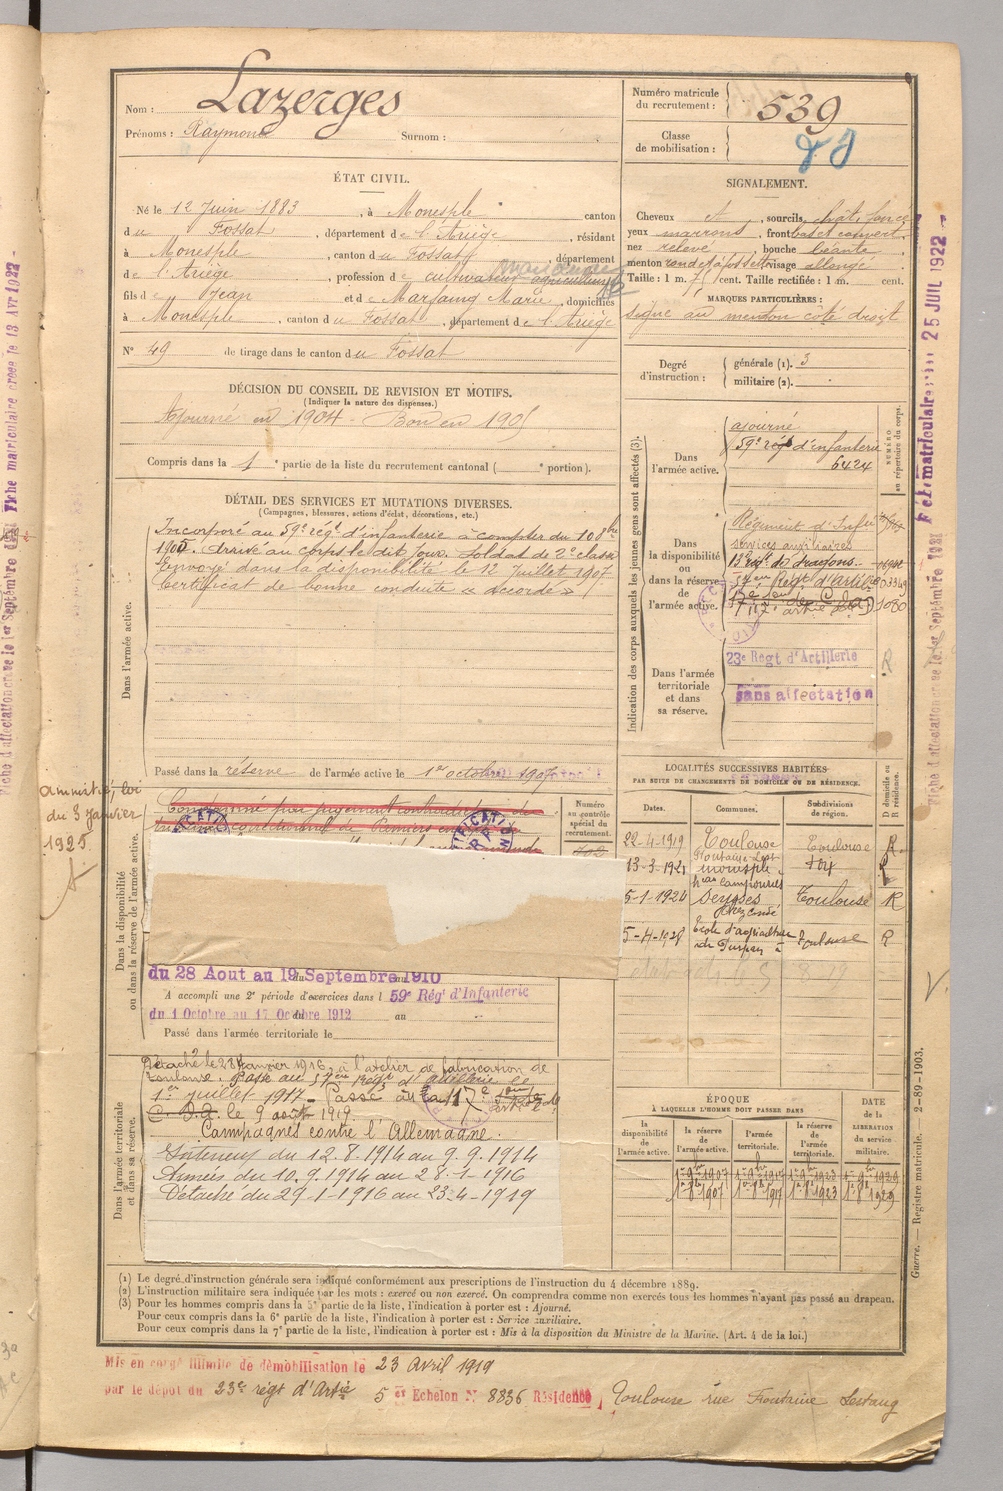 Nom : Lazerges
Prénoms : Raymond Surnom :
Numéro matricule du recrutement : 539
Classe de mobilisation :
ÉTAT CIVIL.
Né le 12 Juin 1883, à Monesple canton
du Fossat, département de l'Ariège, résidant
à Monesple, canton du Fossat, département
de l'Ariège, profession de cultivateur agriculteur
fils de Jean et de Marfaing Marie, domiciliés
à Monesple, canton du Fossat, département de l'Ariège
N° 49 de tirage dans le canton du Fossat
SIGNALEMENT.
Cheveux et, sourcils chat. foncé
yeux marrons, front bas et couvert.
nez relevé, bouche béante,
menton rond et à fossette visage allongé
Taille : 1 m. cent. Taille rectifiée : 1 m. cent.
MARQUES PARTICULIÈRES :
signe au menton coté droit
Degré d'instruction : générale (1). 3
militaire (2).
DÉCISION DU CONSEIL DE REVISION ET MOTIFS.
(Indiquer la nature des dispenses.)
Ajourné en 1904 - Bon en 1905
Compris dans la 1e partie de la liste du recrutement cantonal ( e portion).
DÉTAIL DES SERVICES ET MUTATIONS DIVERSES.
(Campagnes, blessures, actions d'éclat, décorations, etc.)
Dans l'armée active.
Incorporé au 59e régt d'infanterie à compter du 10 8bre
1905. Arrivé au corps le dit jour. Soldat de 2e classe
Envoyé dans la disponibilité le 12 Juillet 1907
Certificat de bonne conduite « accordé »
Passé dans la réserve de l'armée active le 1er octobre 1907
Indication des corps auxquels les jeunes gens sont affectés (3).
NUMÉRO au répertoire du corps.
Dans l'armée active.
ajourné
59e régt d'infanterie
6424
Dans la disponibilité ou dans la réserve de l'armée active.
Régiment d'Infie
services auxiliaires
13e régt de dragons
57eme Régt d'Artie
1080
Dans l'armée territoriale et dans sa réserve.
23e Regt d'Artillerie
R
sans affectation
LOCALITÉS SUCCESSIVES HABITÉES
PAR SUITE DE CHANGEMENTS DE DOMICILE OU DE RÉSIDENCE.
Dates. Communes. Subdivisions de région. D domicile ou R résidence.
22-4-1919 Toulouse Toulouse R
Fontaine Lest
13-3-1921 Monesple
5-1-1924 Seysses Toulouse R
5-4-1928 Ecole d'agriculture Toulouse R
de Purpan à
amnistié, loi
du 3 Janvier
1925
Condamné par jugement contradictoire du
tribunal correctionnel de Pamiers
Numéro au contrôle spécial du recrutement.
Dans la disponibilité ou dans la réserve de l'armée active.
du 28 Aout au 19 Septembre 1910
A accompli une 2e période d'exercices dans l 59e Rég' d'Infanterie
du 1 Octobre au 17 Octobre 1912 au
Passé dans l'armée territoriale le
Dans l'armée territoriale et dans sa réserve.
Détaché le 28 Janvier 1916, à l'atelier de fabrication de
Toulouse. Passé au 57eme Régt d'artillerie le
1er juillet 1917. Passé au 17e
C. O. A. le 9 août 1919.
Campagnes contre l'Allemagne.
Intérieur du 12.8.1914 au 9.9.1914
Armées du 10.9.1914 au 28-1-1916
Détaché du 29-1-1916 au 23-4-1919
ÉPOQUE
À LAQUELLE L'HOMME DOIT PASSER DANS
DATE de la LIBÉRATION du service militaire.
la disponibilité de l'armée active. la réserve de l'armée active. l'armée territoriale. la réserve de l'armée territoriale.
(1) Le degré d'instruction générale sera indiqué conformément aux prescriptions de l'instruction du 4 décembre 1889.
(2) L'instruction militaire sera indiquée par les mots : exercé ou non exercé. On comprendra comme non exercés tous les hommes n'ayant pas passé au drapeau.
(3) Pour les hommes compris dans la 5e partie de la liste, l'indication à porter est : Ajourné.
Pour ceux compris dans la 6e partie de la liste, l'indication à porter est : Service auxiliaire.
Pour ceux compris dans la 7e partie de la liste, l'indication à porter est : Mis à la disposition du Ministre de la Marine. (Art. 4 de la loi.)
Mis en congé illimité de démobilisation le 23 Avril 1919
par le dépôt du 23e régt d'Artie 5 er Echelon N° 8836 Résidence, Toulouse rue Fontaine Lestang
Guerre. — Registre matricule. — 2-89-1903.
Fiche matriculaire créée le 25 JUIL 1922
Fiche d'affectation créée le 1er Septembre 1921
Fiche matriculaire créée le 13 AVR 1922
Fiche d'affectation créée le 1er Septembre